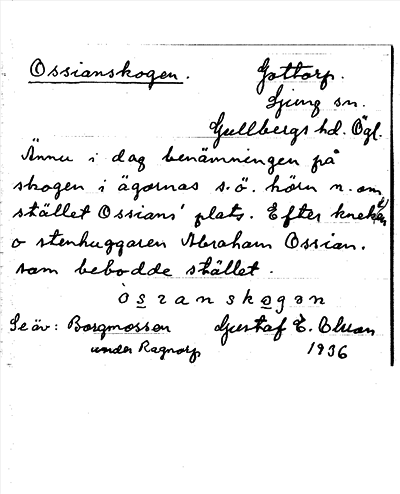 Ossianskogen. Gottorp.
Ljung sn.
Gullbergs hd. Ögl.
Ännu i dag benämningen på
skogen i ägornas s.ö. hörn n. om
stället Ossians' plats. Efter knekten
o stenhuggaren Abraham Ossian.
som bebodde stället.
òsːanskogən
Se äv: Borgmossen Gustaf E.
under Ragnorp 1936